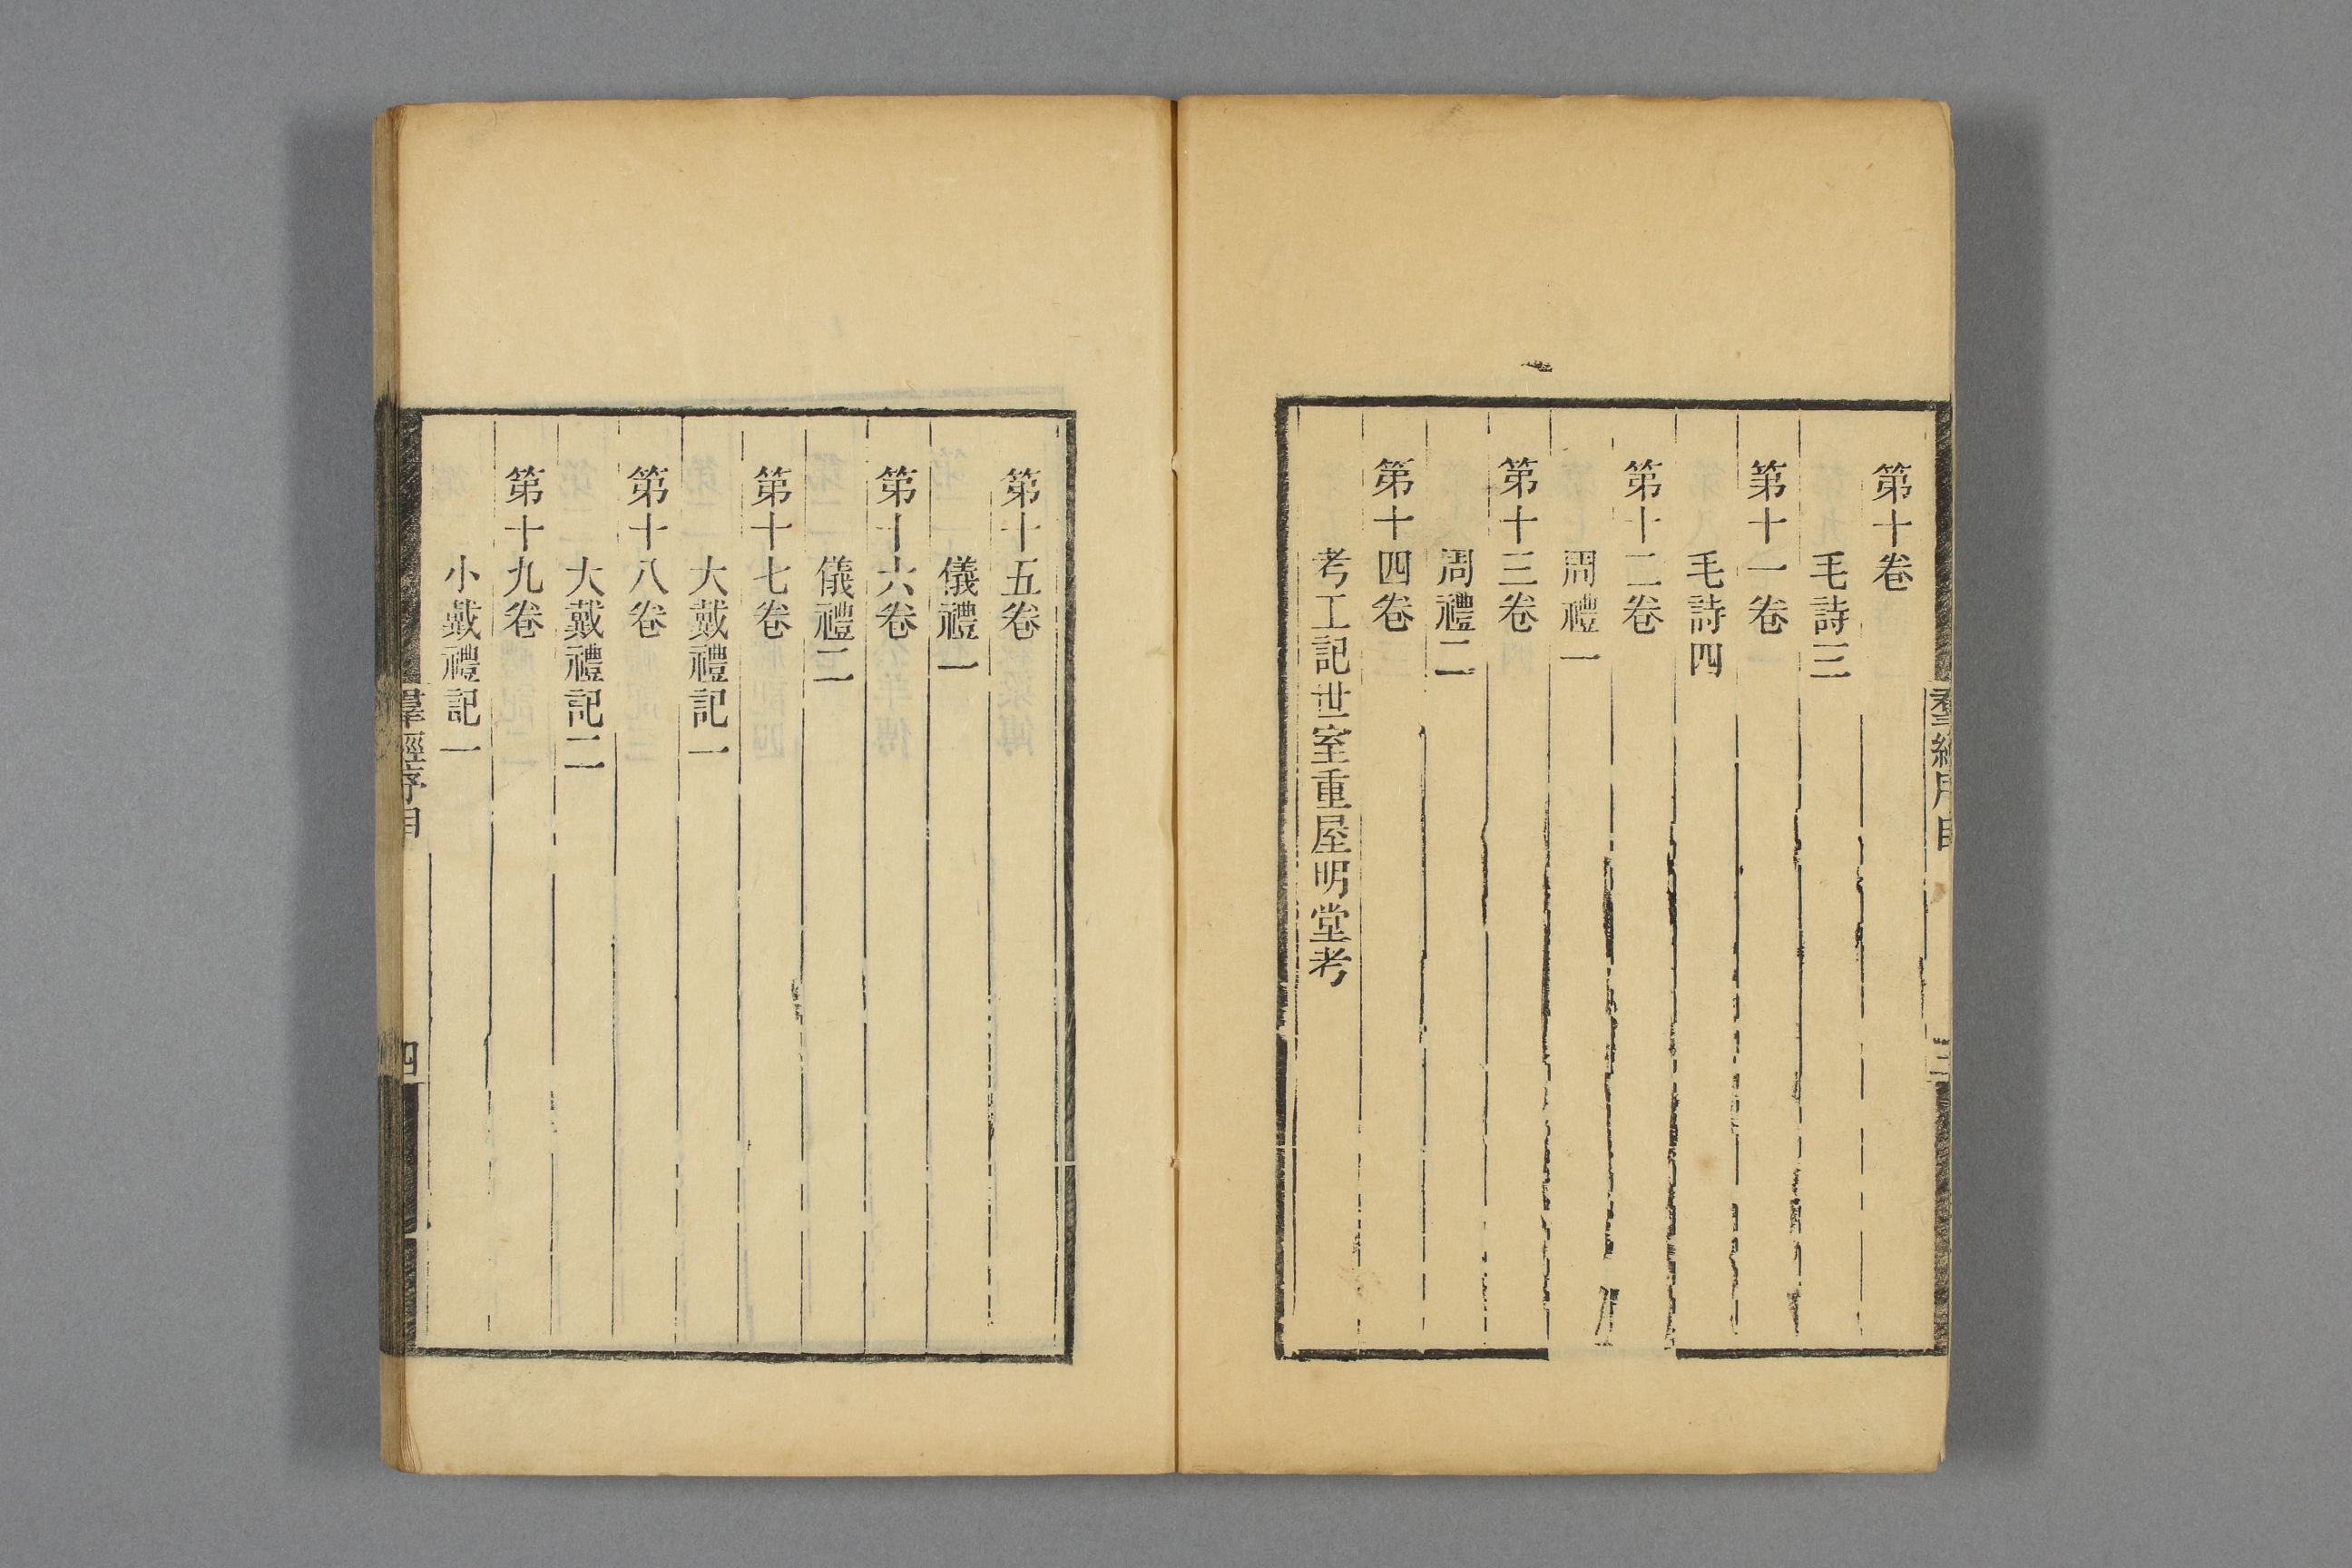 第十卷
毛詩三
第十一卷
毛詩四
第十二卷
周禮一
第十三卷
周禮二
第十四卷
考工記世室重屋明堂考
第十五卷
儀禮一
第十六卷
儀禮二
第十七卷
大戴禮記一
第十八卷
大戴禮記二
第十九卷
小戴禮記一
羣經序目
四